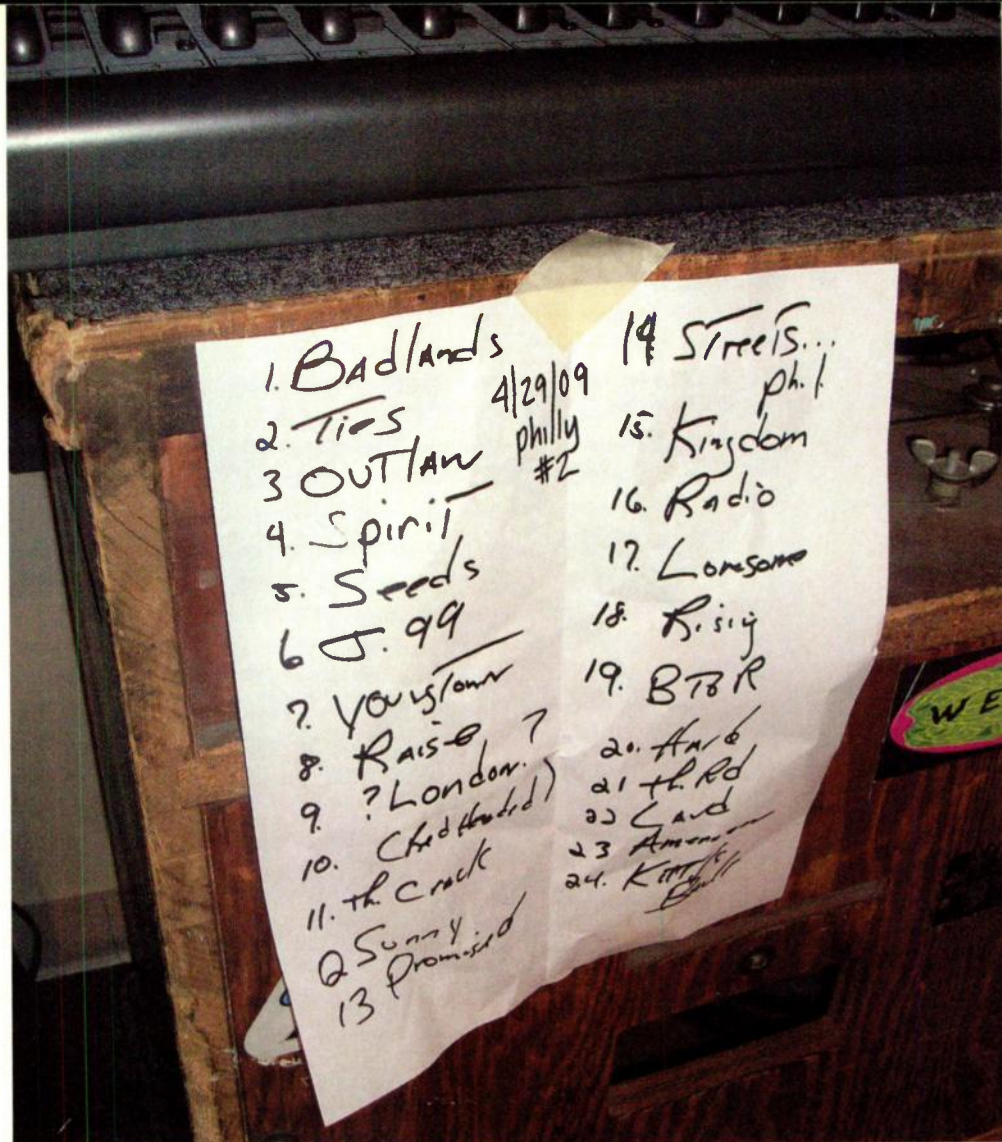 1. Badlands
2. Ties
3 OUTlaw
4. Spirit
5. Seeds
6 J. 99
7. Youngstown
8. Raise
9. ?London. ?
10. (hed Headed)
11. Th. Crack
Q Sunny.
13 Promised
4/29/09
philly
#2
14 Streets...
Ph.l.
15. Kingdom
16. Radio
17. Lonesome
18. Rising
19. BTR
20. Hard
21 th. Rd
22 Land
23 American
24. Kitty's
WE